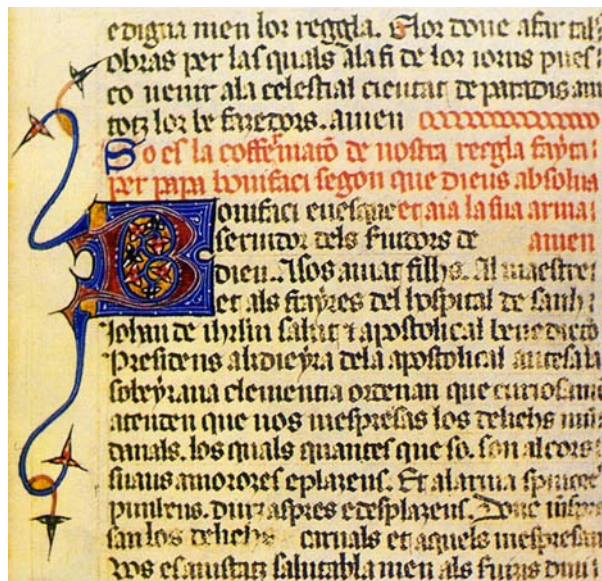 e digna men lor reggla. E lor done afar tals
obras per las quals ala fi de lor iorns pues
co uenir ala celestial cieutat de paradis am
totz lor be fazedors. amen
So es la coffermato de nostra reegla fayta
per papa bonifaci segon que dieus absolua
Bonifaci euesque et aia la sua arma
seruidor dels seruidors de amen
dieu. Asos amat filhs. Al maestre
et als frayres del hospital de sanh
Johan de ihrlm salut τ apostolical benedicto
Presidens
sobeyrana clementia ordenan que curiosamen
atenden que uos mespresas los deliehs mu
danals. los quals quantes que so. son al cors
suaus amoros e plazens. Et al arma
aspres e desplazens. Donc
san los deliehs carnals et aquels mespresan
uos